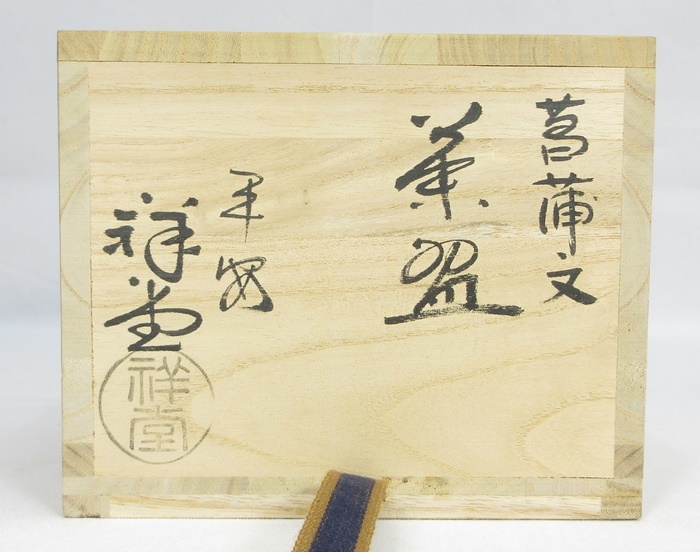 菖蒲文
菓盌
平安
祥堂
祥堂